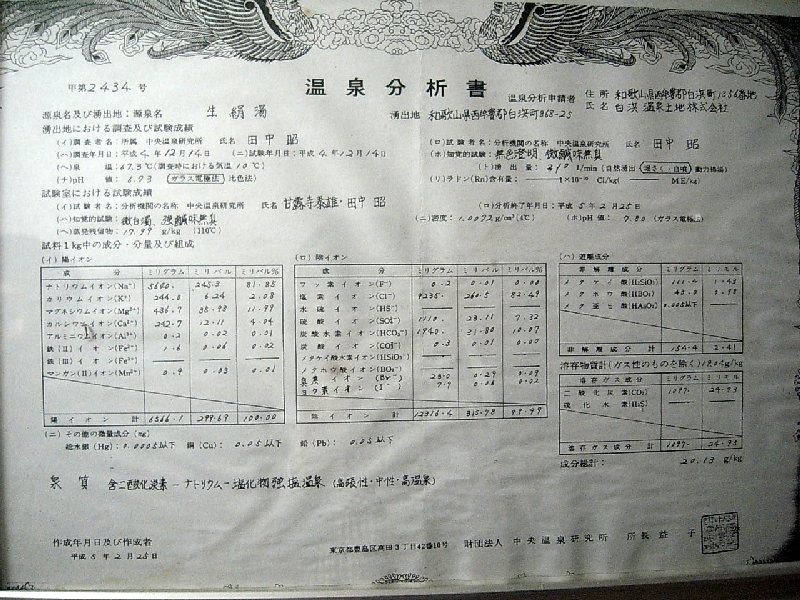 甲第2434号
温泉分析書
温泉分析申請者 住所 和歌山県西牟婁郡白浜町1356番地
氏名 白浜温泉土地株式会社
源泉名及び湧出地:源泉名 生絹湯 湧出地 和歌山県西牟婁郡白浜町868-25
湧出地における調査及び試験成績
(イ)調査者名:所属 中央温泉研究所 氏名 田中 昭 (ロ)試験者名:分析機関の名称 中央温泉研究所 氏名 田中 昭
(ハ)調査年月日:平成4年12月14日 (ニ)試験年月日:平成4年12月14日 (ホ)知覚的試験:無色澄明 微鹹味無臭
(ヘ)泉温:67.3℃(調査時における気温10℃) (ト)湧出量: l/min(自然湧出・掘さく・自噴・動力揚湯)
(チ)pH値:6.73(ガラス電極法・比色法) (リ)ラドン(Rn)含有量: ×10⁻¹⁰ Ci/kg( M.E/kg)
試験室における試験成績
(イ)試験者名:分析機関の名称 中央温泉研究所 氏名 甘露寺泰雄・田中昭 (ロ)分析終了年月日:平成5年2月25日
(ハ)知覚的試験:微白濁、強鹹味無臭 (ニ)密度:1.0092g/cm³(4℃) (ホ)pH値:7.80(ガラス電極法)
(ヘ)蒸発残留物:17.97 g/kg (110℃)
試料1kg中の成分・分量及び組成
(イ)陽イオン
成分 ミリグラム ミリバル ミリバル%
ナトリウムイオン(Na⁺) 5640. 245.3 81.85
カリウムイオン(K⁺) 244.0 6.24 2.08
マグネシウムイオン(Mg²⁺) 436.7 35.93 11.99
カルシウムイオン(Ca²⁺) 242.7 12.11 4.04
アルミニウムイオン(Al³⁺) 0.2 0.02 0.01
鉄(II)イオン(Fe²⁺) 1.6 0.06 0.02
鉄(III)イオン(Fe³⁺)
マンガン(II)イオン(Mn²⁺) 0.9 0.03 0.01
陽イオン計 6566.1 299.69 100.00
(ロ)陰イオン
成分 ミリグラム ミリバル ミリバル%
フッ素イオン(F⁻) 0.2 0.01 0.00
塩素イオン(Cl⁻) 9235. 260.5 82.49
水硫イオン(HS⁻)
硫酸イオン(SO₄²⁻) 1110. 23.11 7.32
炭酸水素イオン(HCO₃⁻) 1940. 31.80 10.07
炭酸イオン(CO₃²⁻) 0.3 0.01 0.00
メタケイ酸水素イオン(HSiO₃⁻)
メタホウ酸イオン(BO₂⁻)
臭素イオン(Br⁻) 23.0 0.29 0.09
ヨウ素イオン(I⁻) 0.02
陰イオン計 12316.4 315.78 99.99
(ハ)遊離成分
非解離成分 ミリグラム ミリモル
メタケイ酸(H₂SiO₃) 111.4 1.43
メタホウ酸(HBO₂) 43.0 0.98
メタ亜ヒ酸(HAsO₂) 0.005以下
非解離成分計 154.4 2.41
溶存物質計(ガス性のものを除く)19.04g/kg
溶存ガス成分 ミリグラム ミリモル
二酸化炭素(CO₂) 1097. 24.93
硫化水素(H₂S)
溶存ガス成分計 1097. 24.93
成分総計: 20.13 g/kg
(ニ)その他の微量成分(mg)
総水銀(Hg):0.0005以下 銅(Cu):0.05以下 鉛(Pb):0.05以下
泉質 含二酸化炭素-ナトリウム-塩化物強塩温泉(高張性・中性・高温泉)
作成年月日及び作成者
平成5年2月25日
東京都豊島区高田3丁目42番10号 財団法人 中央温泉研究所 所長 益子